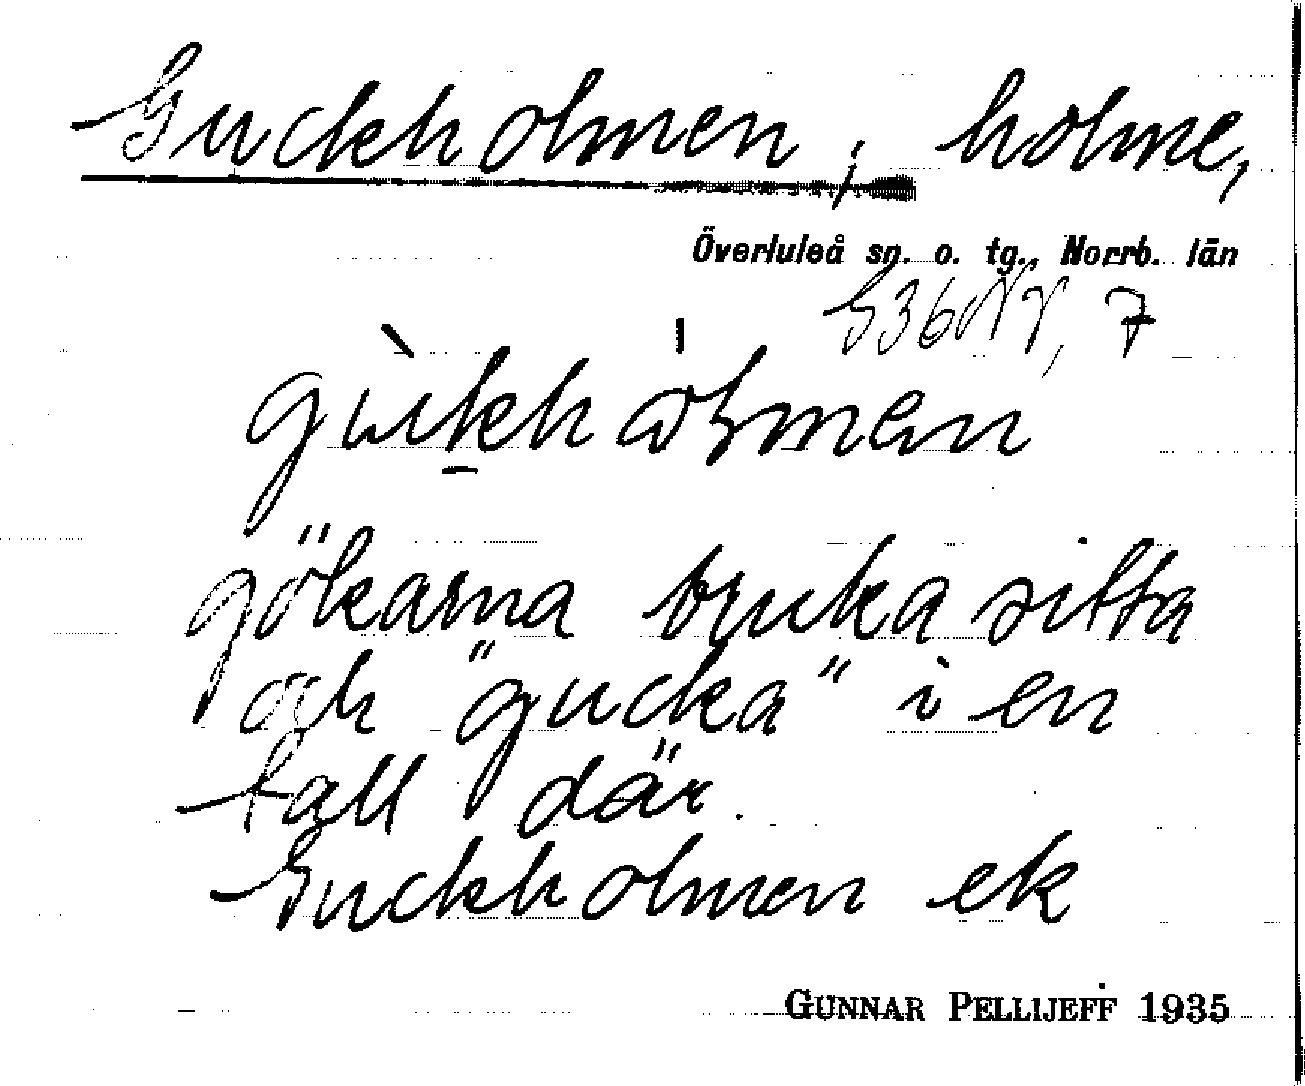 Guckholmen, holme,
Överluleå sn. o. tg., Norrb. län
gökarna bruka sitta
och "gucka" i en
tall där.
Guckholmen ek
GUNNAR PELLIJEFF 1935